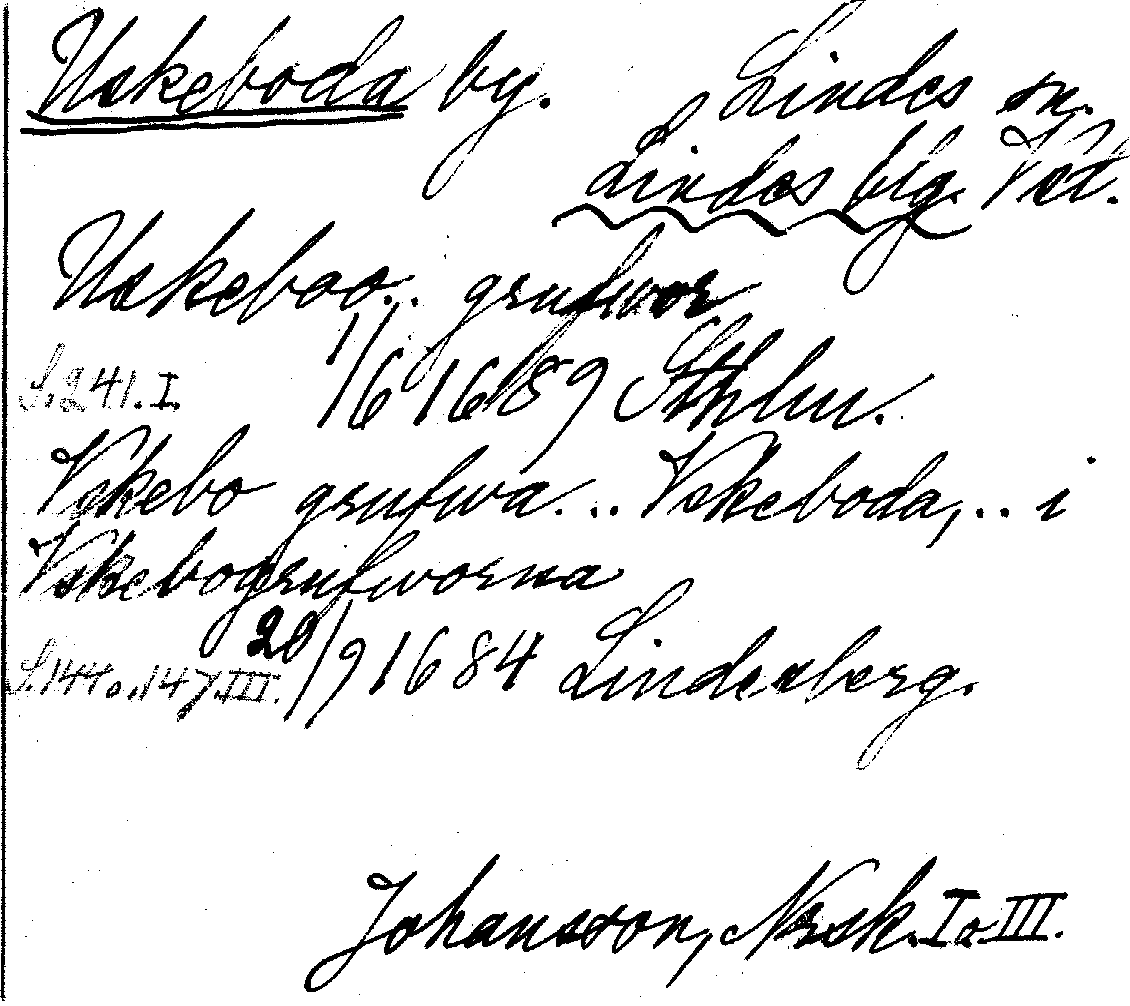 Uskeboda by. Lindes sn.
Lindes blg. Vstl.
Uskeboo.. grufwor
S. 241. I. 1/6 1689 Sthlm.
Vskebo grufwa... Vskeboda,.. i
Vskebogrufworna
S. 144 o. 147 III. 20/9 1684 Lindesberg.
Johansson, Nrsk. I o. III.